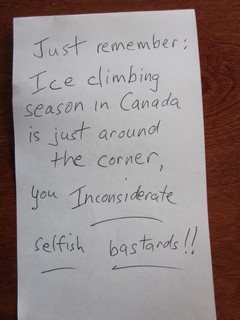 Just remember:
Ice climbing
season in Canada
is just around
the corner,
you Inconsiderate
selfish bastards!!